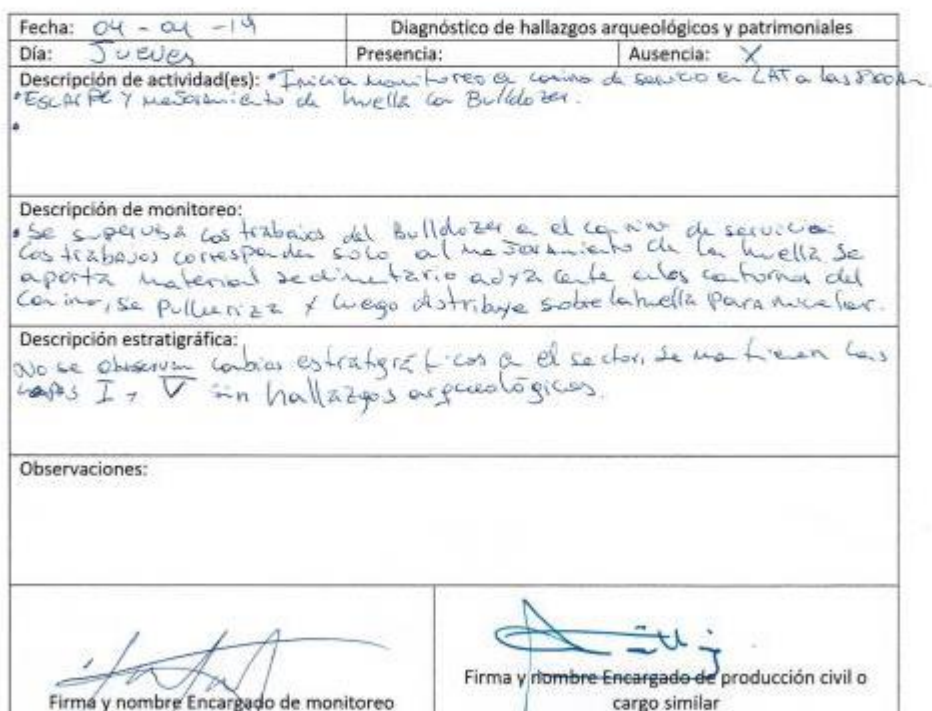 Fecha: 04 - 04 - 19 Diagnóstico de hallazgos arqueológicos y patrimoniales
Día: Jueves Presencia: Ausencia: X
Descripción de actividad(es): • Inicia monitoreo en camino de servicio en LAT a las
• ESCARPE Y mejoramiento de huella con Bulldozer.
•
Descripción de monitoreo:
• Se supervisa los trabajos del Bulldozer en el camino de servicio.
Los trabajos corresponden solo al mejoramiento de la huella se
aporta material sedimentario adyacente en los contornos del
camino, se pulveriza y luego distribuye sobre la huella para nivelar.
Descripción estratigráfica:
No se observan cambios estratigráficos en el sector, se mantienen las
capas I y V sin hallazgos arqueológicos.
Observaciones:
Firma y nombre Encargado de monitoreo
Firma y nombre Encargado de producción civil o
cargo similar